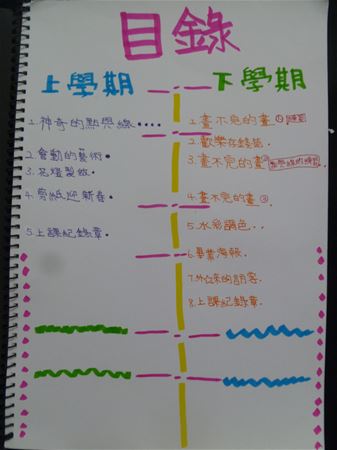 目錄
上學期
1.神奇的點與線••••
2.會動的藝術•
3.燈製做•
4.剪紙迎新春•
5.上課紀錄章•
下學期
1.畫不完的畫①練習
2.歡樂存錢筒..
3.畫不完的畫②
4.畫不完的畫③
5.水彩調色..
6.畢業海報.
7.來的訪客
8.上課紀錄章.